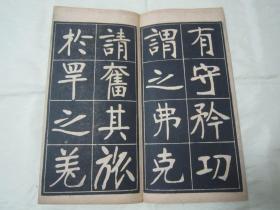 有守矜功
謂之弗克
請奮其旅
於罕之羌